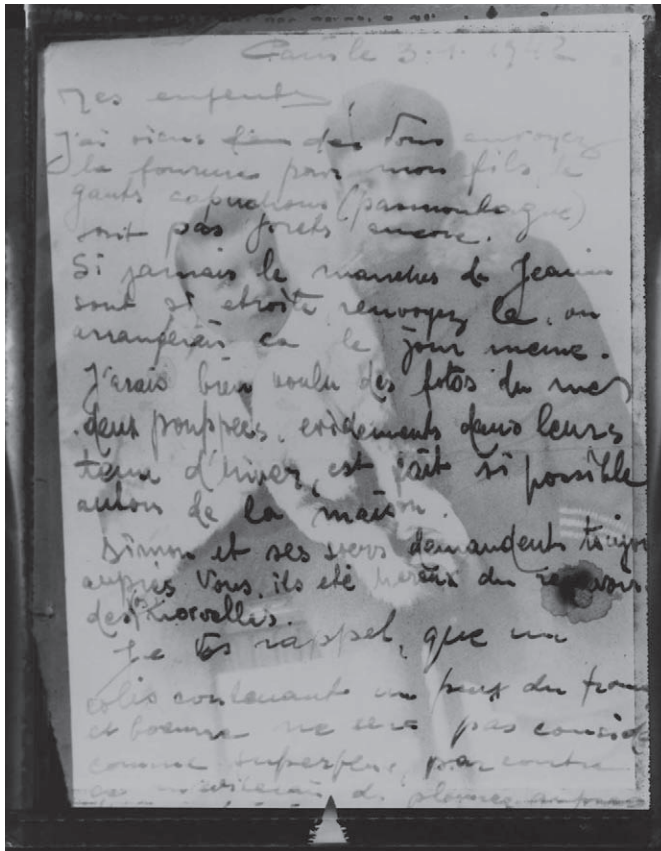 Paris le 3.1.1942
Mes enfents
J'ai viens de Vous envoyez
la fourrure pour mon fils, le
gants capuchons (passmontagne)
sont pas prets encore.
Si jamais le manches de Jeanine
sont si etroite renvoyez le, on
arrangerais ca le jour meme.
J'arais bien voulu des fotos du mes
deux pouppées, evidements dans leurs
tenu d'hiver, est fait si possible
autour de la maison.
Simon et ses soers demandents toujou
aupres Vous, ils eté hereux du
des Niorvelles.
Je Vs rappel, que un
colis contenante un peux du
et boeurre ne sera pas conside
comme superflue, par contre